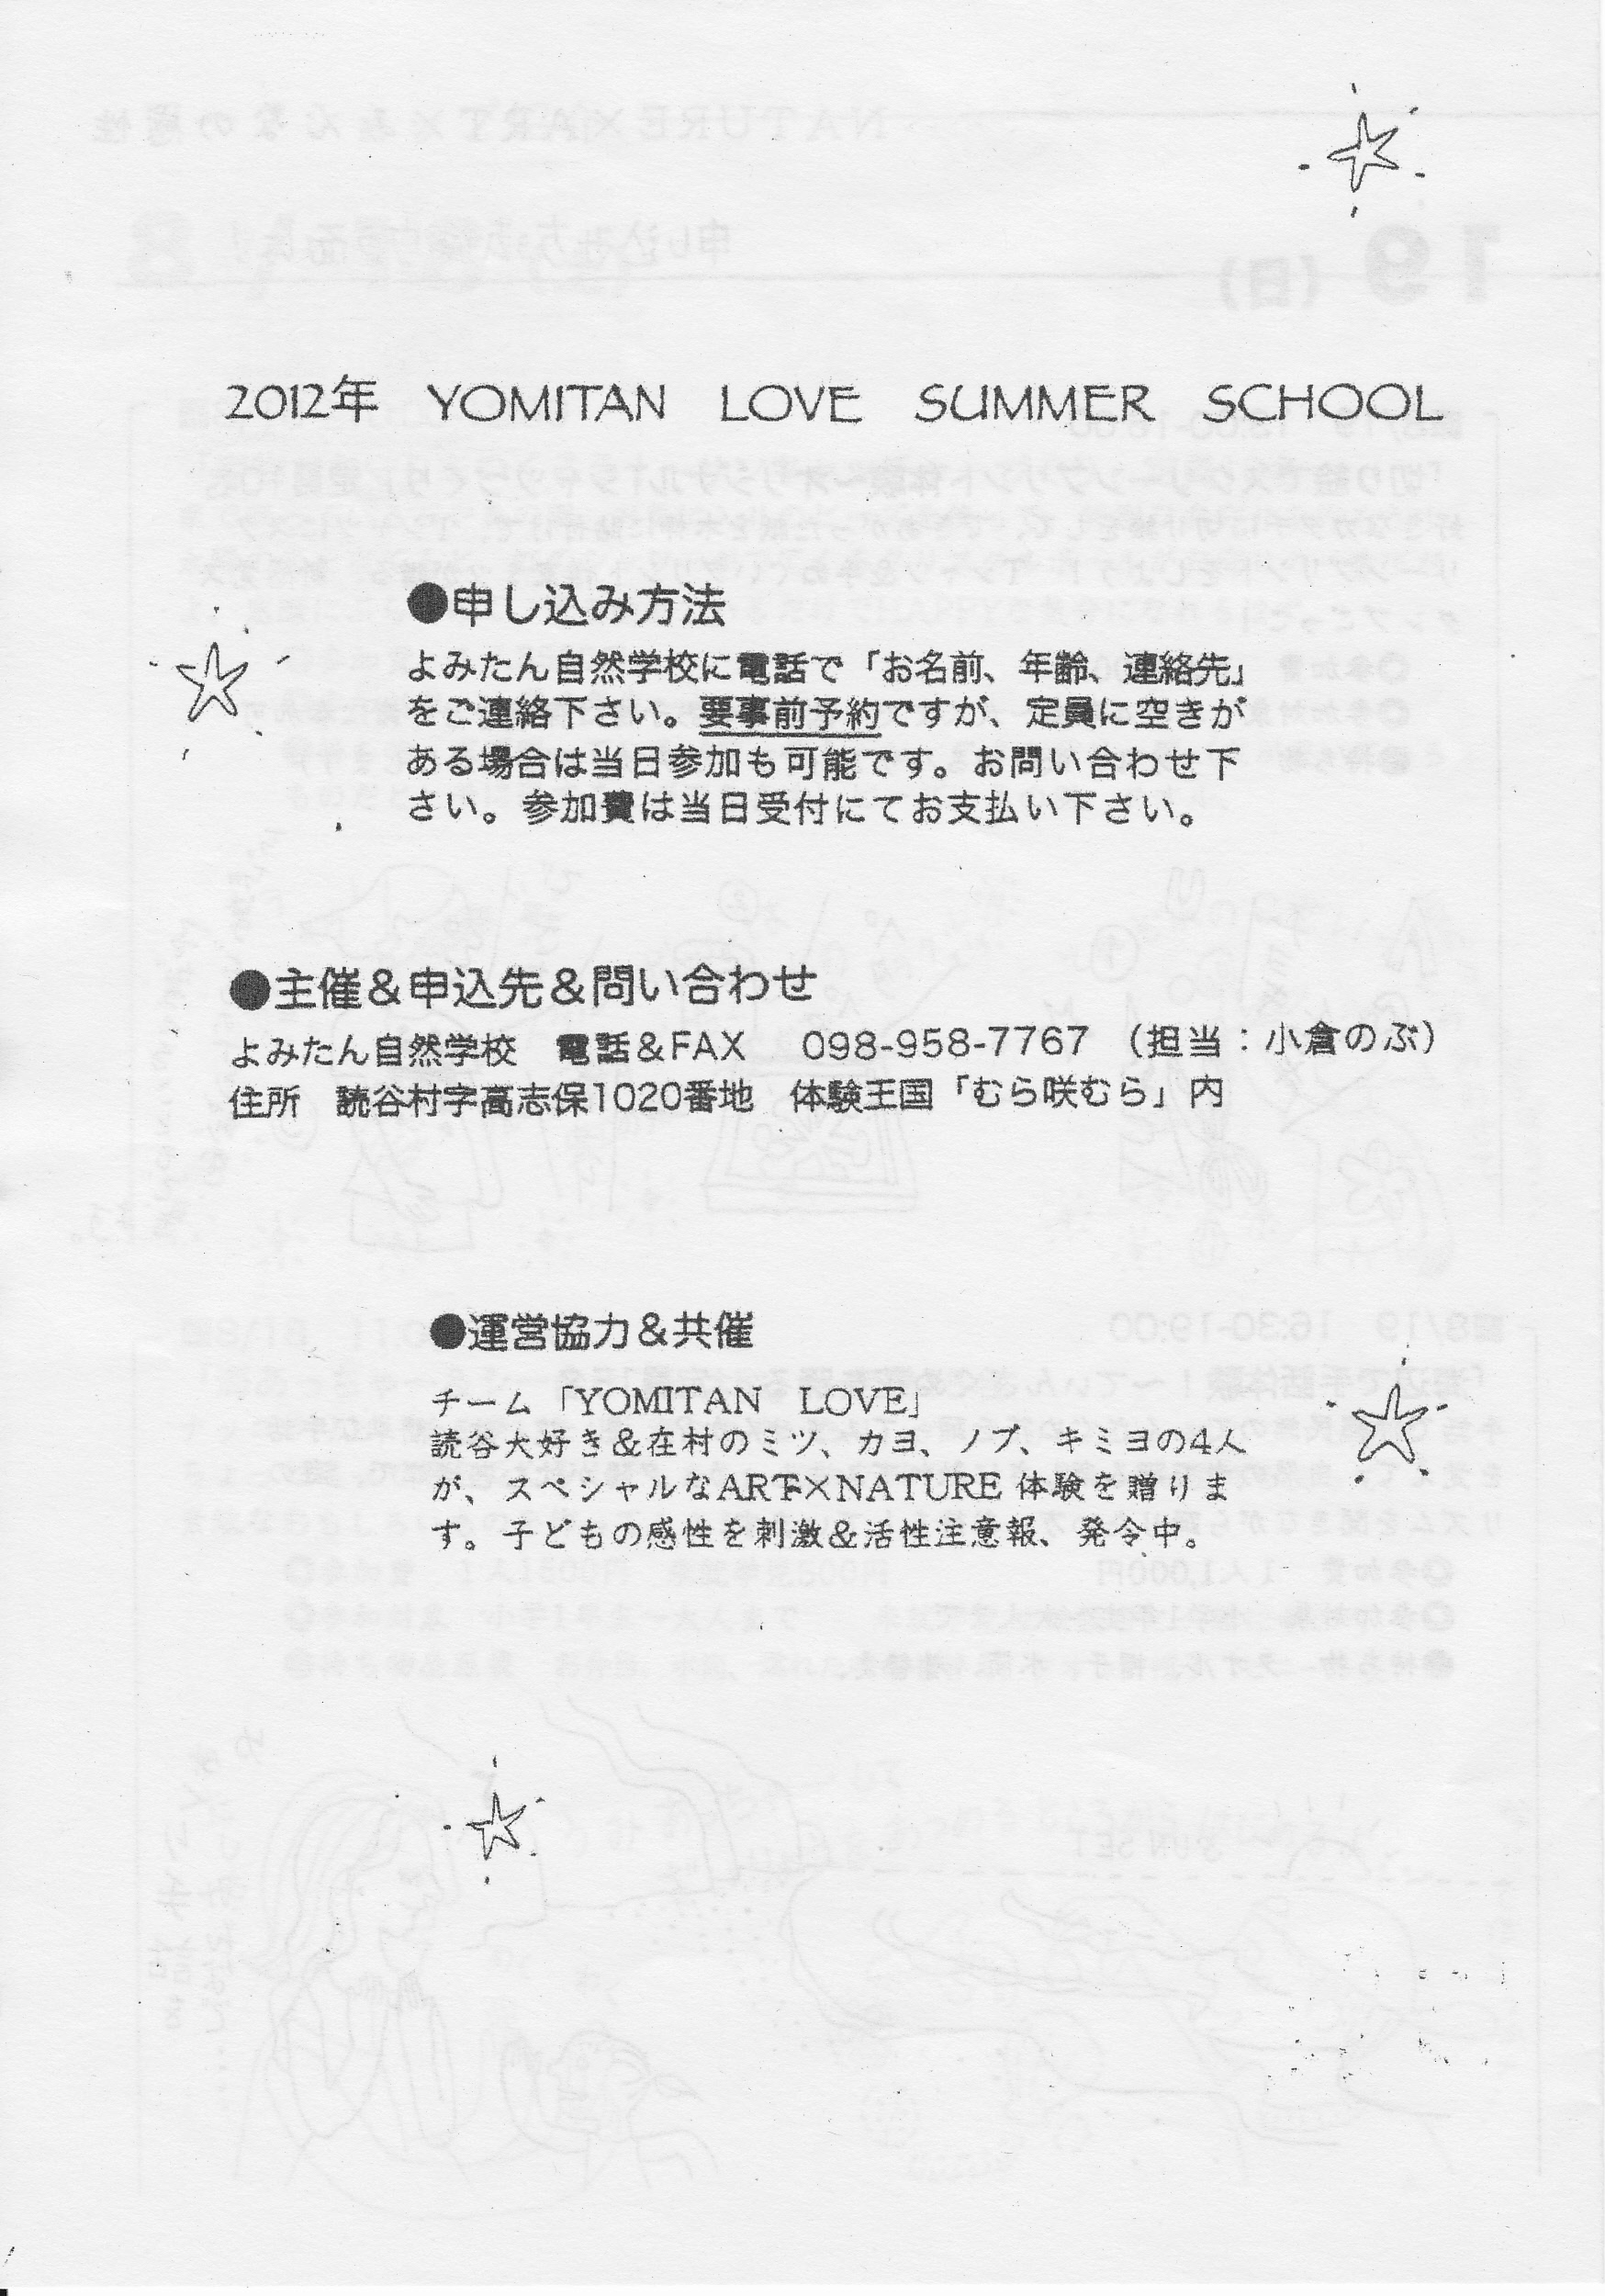 2012年　YOMITAN　LOVE　SUMMER　SCHOOL
●申し込み方法
よみたん自然学校に電話で「お名前、年齢、連絡先」
をご連絡下さい。要事前予約ですが、定員に空きが
ある場合は当日参加も可能です。お問い合わせ下
さい。参加費は当日受付にてお支払い下さい。
●主催＆申込先＆問い合わせ
よみたん自然学校　電話＆FAX　098-958-7767　（担当：小倉のぶ）
住所　読谷村字高志保1020番地　体験王国「むら咲むら」内
●運営協力＆共催
チーム「YOMITAN　LOVE」
読谷大好き＆在村のミツ、カヨ、ノブ、キミヨの4人
が、スペシャルなART×NATURE 体験を贈りま
す。子どもの感性を刺激＆活性注意報、発令中。